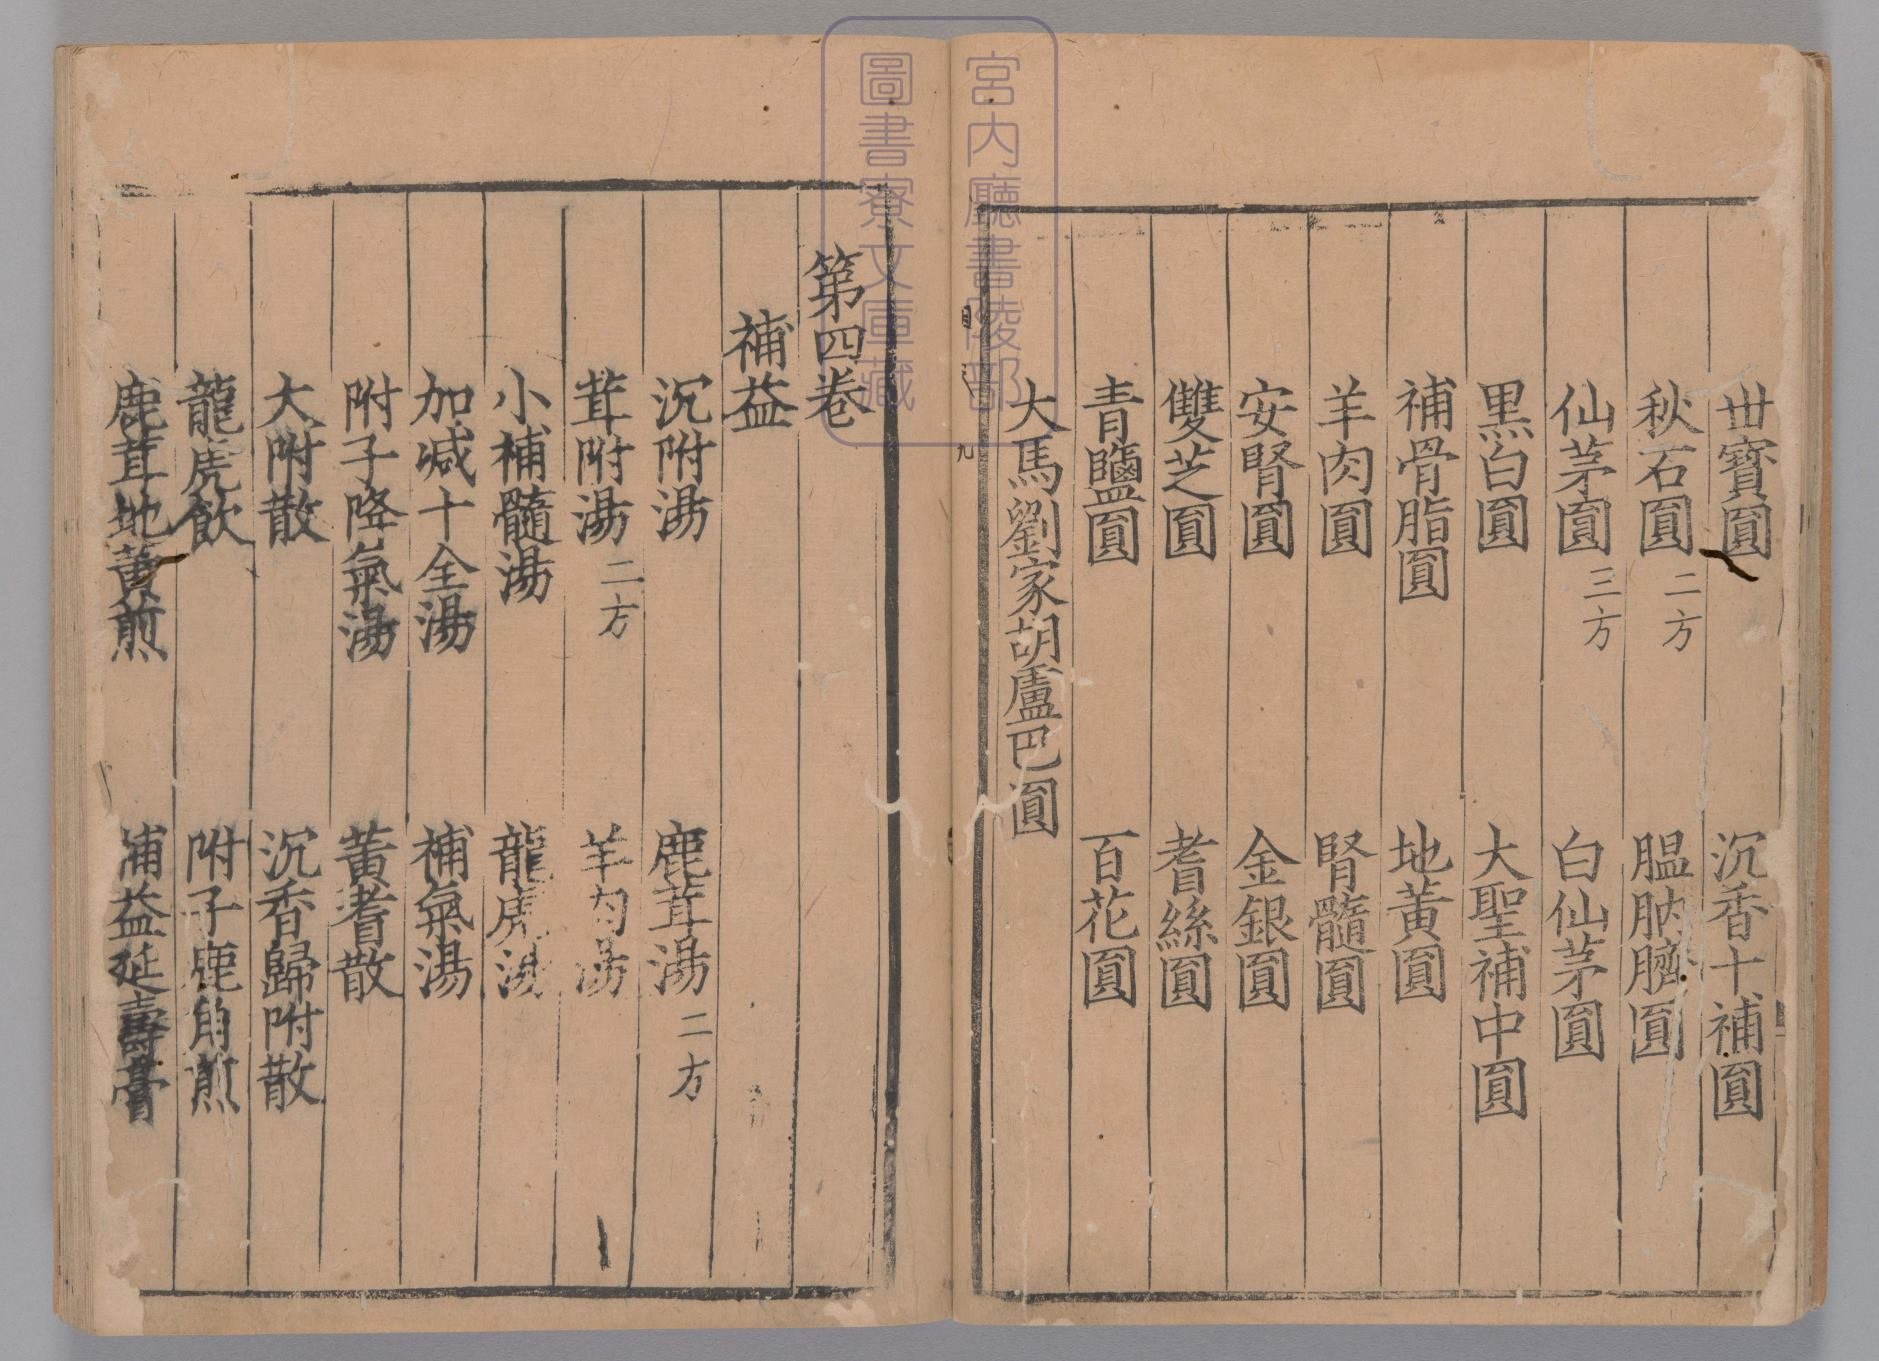 丗寳圓　沉香十補圓
秋石圓二方　膃肭臍圓
仙茅圓三方　白仙茅圓
黒白圓　大聖補中圓
補骨脂圓　地黄圓
羊肉圓　腎髓圓
安腎圓　金銀圓
雙芝圓　耆絲圓
青鹽圓　百花圓
大馬劉家胡盧巴圓
九
第四卷
補益
沉附湯　鹿茸湯二方
茸附湯二方　羊肉湯
小補髓湯　龍虎湯
加减十全湯　補氣湯
附子降氣湯　黄耆散
大附散　沉香歸附散
龍虎飲　附子鹿角煎
鹿茸地黄煎　補益延壽膏
宮内廳書陵部
圖書寮文庫藏